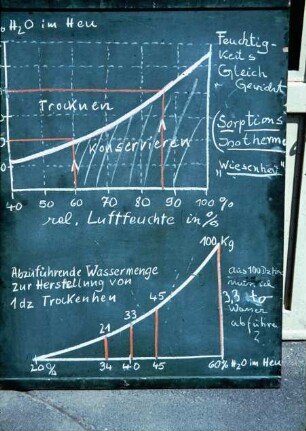 H₂O im Heu
Feuchtig-
keits
Gleich
Gewicht
Trocknen
(Sorptions
Isotherme)
Konservieren
„Wiesenheu"
40 50 60 70 80 90 100 %
rel. Luftfeuchte in %
100 Kg
Abzuführende Wassermenge
zur Herstellung von
1 dz Trockenheu
aus 100 Dz Heu
muss ich
3,3 to
Wasser
abführe
?
45
33
21
20% 34 40 45 60% H₂O im Heu